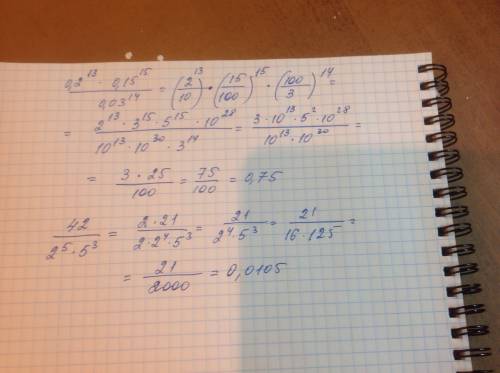 0,2^13 · 0,15^15 / 0,03^14 = (2/10)^13 · (15/100)^15 · (100/3)^14 =
= 2^13 · 3^15 · 5^15 · 10^28 / 10^13 · 10^30 · 3^14 = 3 · 10^13 · 5^2 · 10^28 / 10^13 · 10^30 =
= 3 · 25 / 100 = 75 / 100 = 0,75
42 / 2^5 · 5^3 = 2 · 21 / 2 · 2^4 · 5^3 = 21 / 2^4 · 5^3 = 21 / 16 · 125 =
= 21 / 2000 = 0,0105